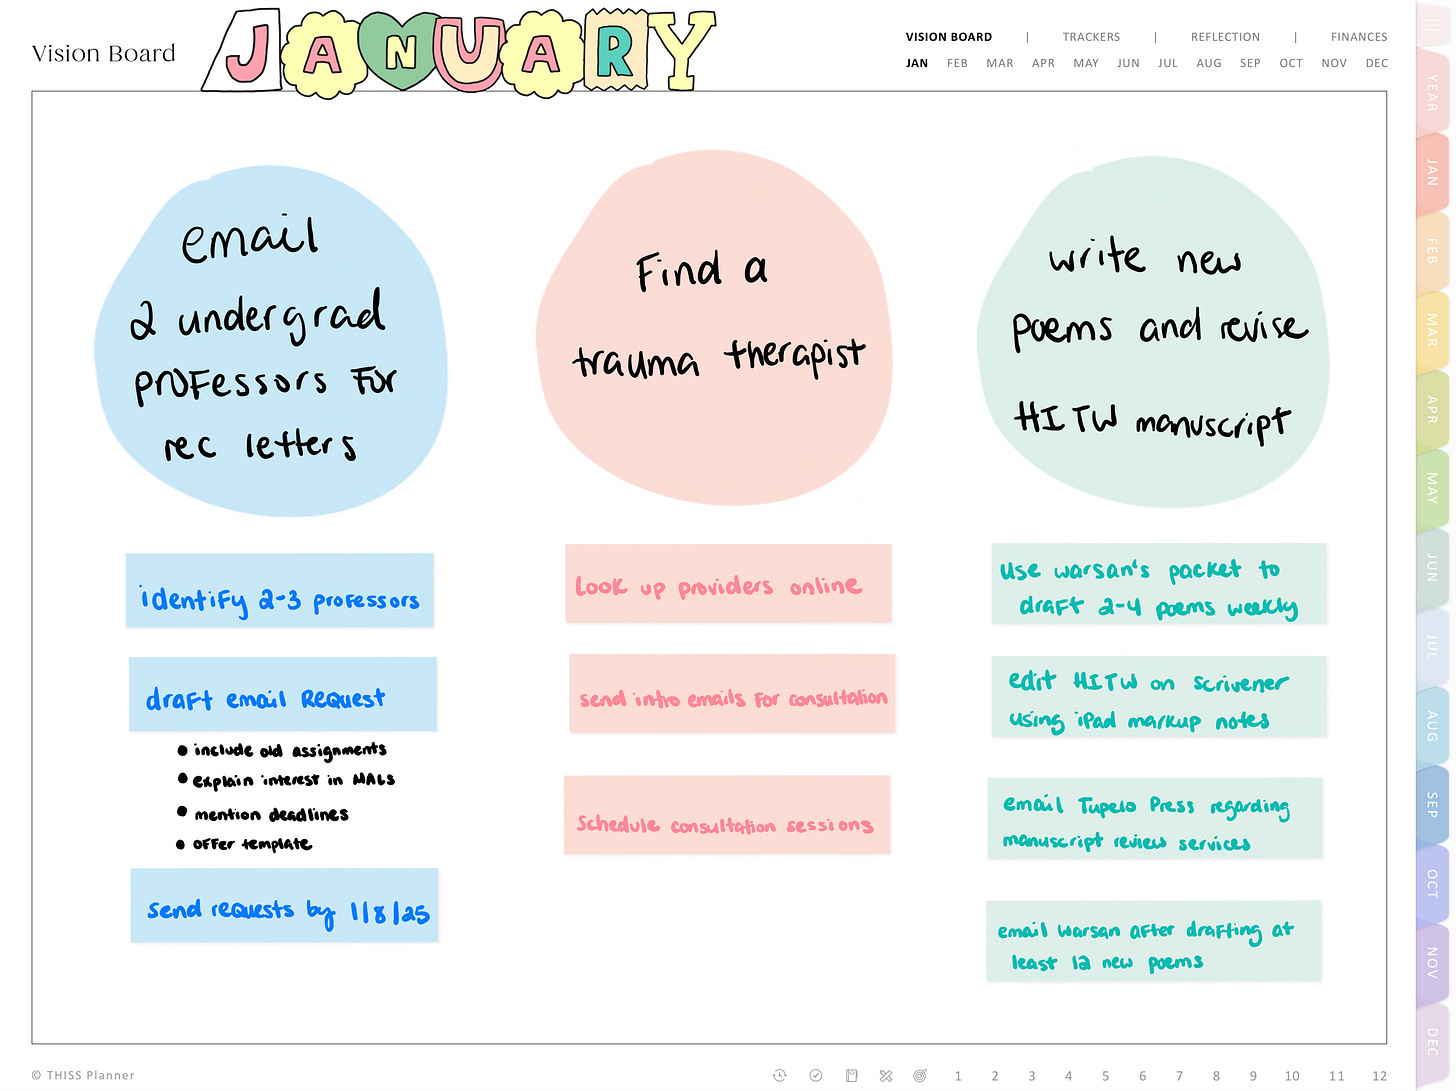 Vision Board
JANUARY
VISION BOARD | TRACKERS | REFLECTION | FINANCES
JAN FEB MAR APR MAY JUN JUL AUG SEP OCT NOV DEC
email
2 undergrad
professors for
rec letters
identify 2-3 professors
draft email Request
• include old assignments
• explain interest in MALS
• mention deadlines
• offer template
send requests by 1/8/25
Find a
trauma therapist
Look up providers online
send intro emails for consultation
Schedule consultation sessions
write new
poems and revise
HITW manuscript
Use warsan's packet to
draft 2-4 poems weekly
edit HITW on scrivener
using iPad markup notes
email Tupelo Press regarding
manuscript review services
email warsan after drafting at
least 12 new poems
YEAR
JAN
FEB
MAR
APR
MAY
JUN
JUL
AUG
SEP
OCT
NOV
DEC
© THISS Planner
1 2 3 4 5 6 7 8 9 10 11 12